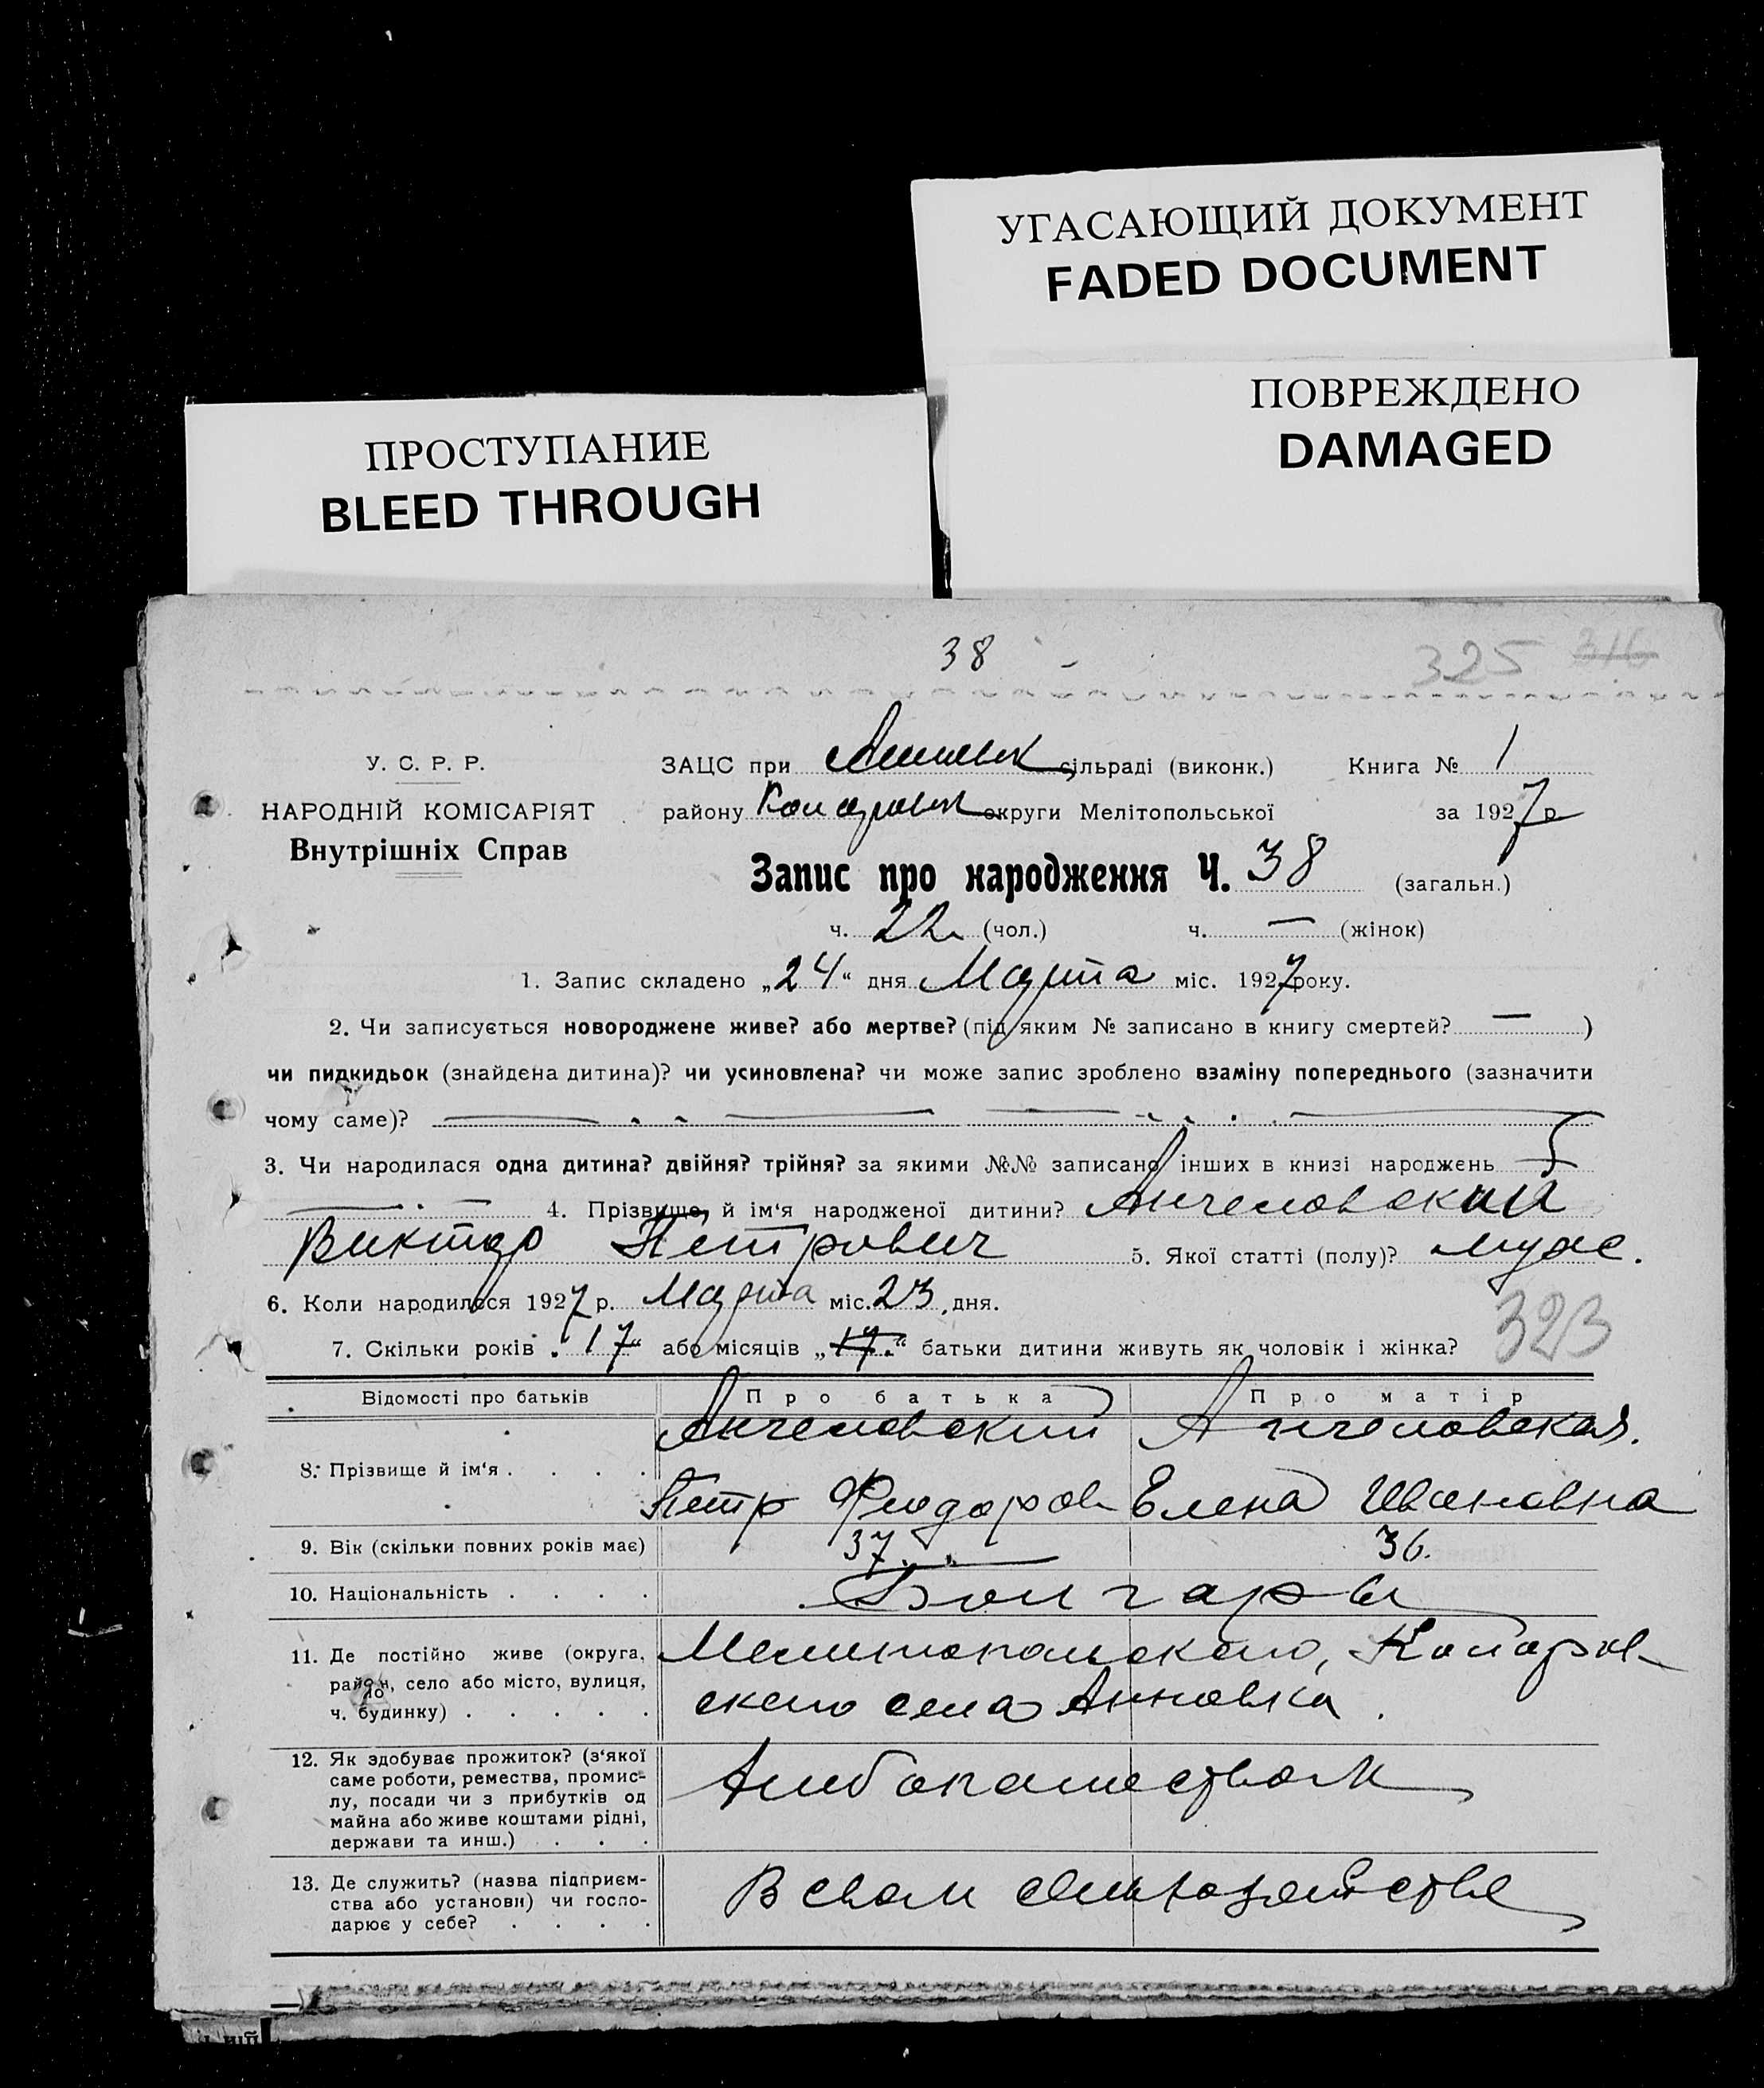 УГАСАЮЩИЙ ДОКУМЕНТ
FADED DOCUMENT
ПОВРЕЖДЕНО
DAMAGED
ПРОСТУПАНИЕ
BLEED THROUGH
38
325 316
У. С. Р. Р.
НАРОДНІЙ КОМІСАРІЯТ
Внутрішніх Справ
ЗАЦС при сільраді (виконк.) Книга № 1
району округи Мелітопольської за 1927 р.
Запис про народження Ч. 38 (загальн.)
ч. 22 (чол.) ч. — (жінок)
1. Запис складено „24“ дня Марта міс. 1927 року.
2. Чи записується новороджене живе? або мертве? (під яким № записано в книгу смертей? — )
чи пидкидьок (знайдена дитина)? чи усиновлена? чи може запис зроблено взаміну попереднього (зазначити
чому саме)?
3. Чи народилася одна дитина? двійня? трійня? за якими №№ записано інших в книзі народжень
4. Прізвище й ім'я народженої дитини? Ангеловский
Виктор Петрович 5. Якої статті (полу)? муж.
6. Коли народилося 1927 р. Марта міс. 23 дня.
7. Скільки років „17“ або місяців „17“ батьки дитини живуть як чоловік і жінка?
323
Відомості про батьків Про батька Про матір
8. Прізвище й ім'я . . . . Ангеловский Ангеловская.
Петр Феодоров Елена Ивановна
9. Вік (скільки повних років має) 37 36.
10. Національність . . . . Болгары
11. Де постійно живе (округа,
район, село або місто, вулиця,
ч. будинку) . . . . .
Мелитопольского, Коларов-
ского села Анновка.
12. Як здобуває прожиток? (з'якої
саме роботи, ремества, промис-
лу, посади чи з прибутків од
майна або живе коштами рідні,
держави та инш.) . . .
Хлебопашеством
13. Де служить? (назва підприєм-
ства або установи) чи госпо-
дарює у себе? . . . .
В своем сельхозяйстве